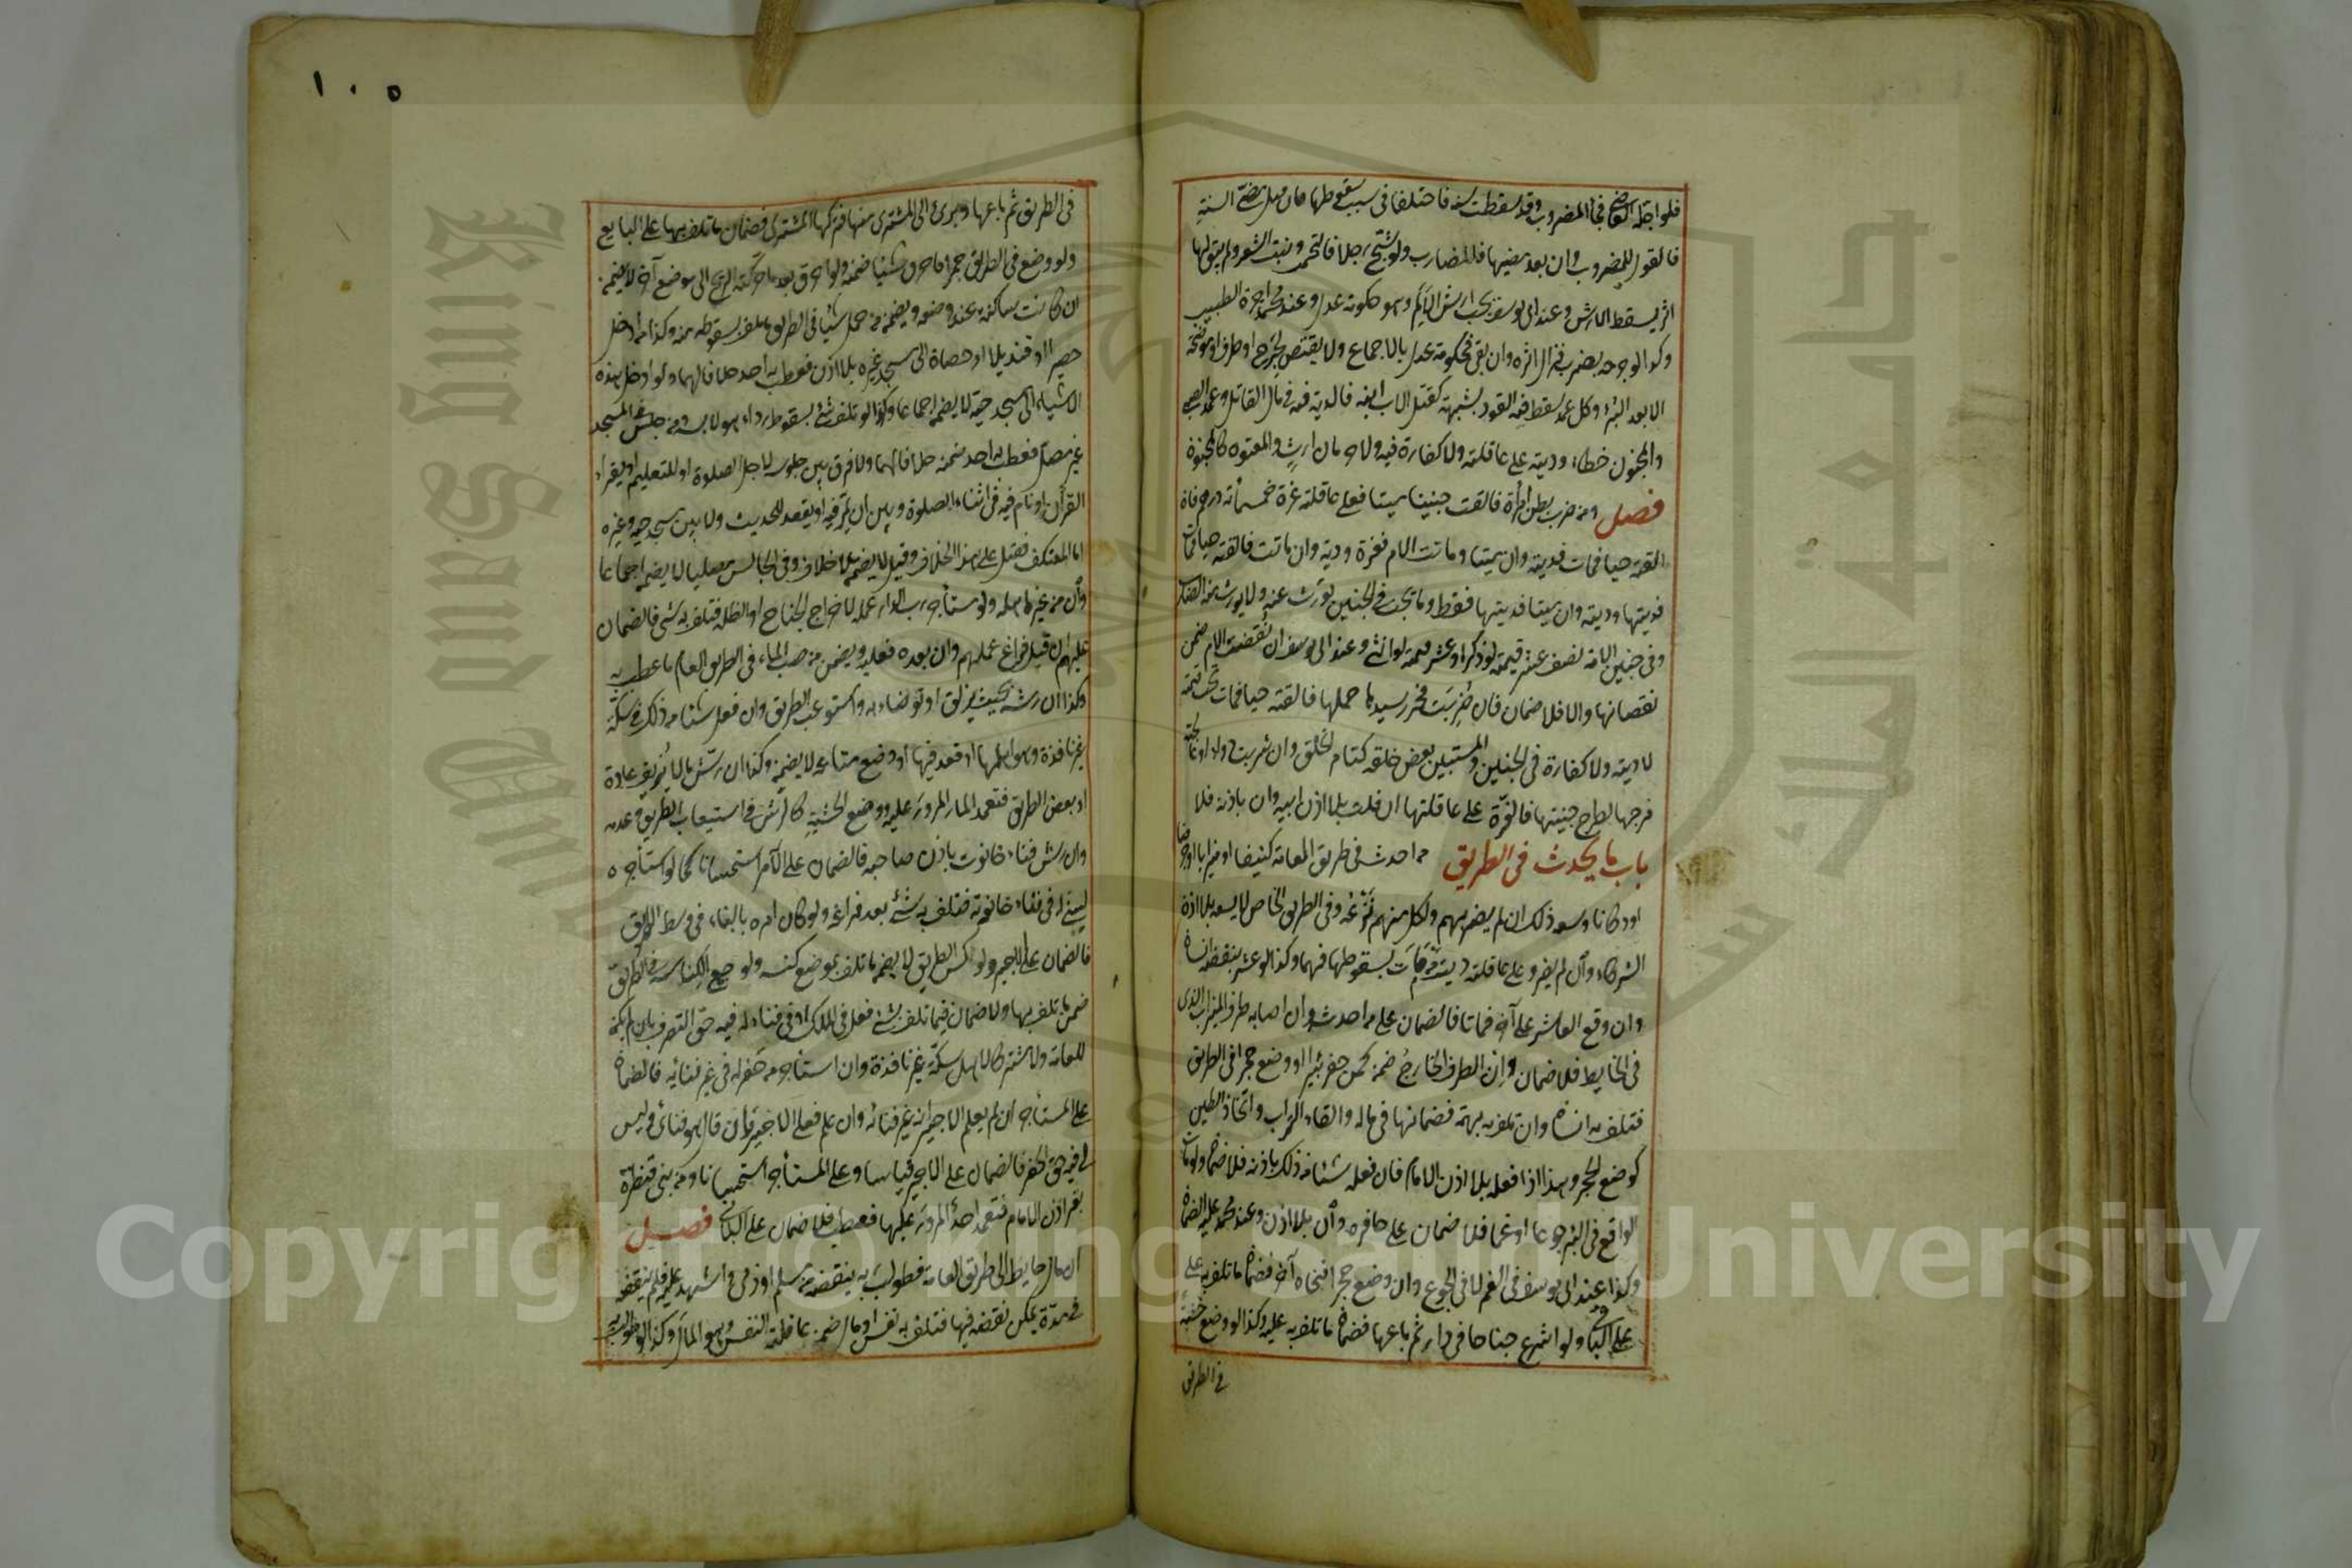 فلو اجله القاضي فجاء المضروب وقد سقطت سنه فاختلفا في سبب سقوطها فان قبل مضي السنة
فالقول للمضروب وان بعد مضيها فللضارب ولو شج رجلا فالتحمت ونبت الشعر ولم يبق لها
اثر يسقط الارش وعند ابي يوسف يجب ارش الالم وهو حكومة عدل وعند محمد اجرة الطبيب
وكذا لو جرحه بضرب فزال اثره وان بقي فحكومة عدل بالاجماع ولا يقتص لجرح او طرف او موضحة
الا بعد البرء وكل عمد سقط فيه القود بشبهة كقتل الاب ابنه فالدية فيه في مال القاتل وعمد الصبي
والمجنون خطاء وديته على عاقلته ولا كفارة فيه ولا حرمان ارث والمعتوه كالمجنون
فصل ومن ضرب بطن امرأة فالقت جنينا ميتا فعلى عاقلته غرة خمسمأة درهم فان
القته حيا فمات فدية وان ميتا وماتت الام فغرة ودية وان ماتت فالقته حيا فمات
فديتها وديته وان ميتا فديتها فقط وما يجب في الجنين يورث عنه ولا يورث منه الضارب
وفي جنين الامة نصف عشر قيمته لو ذكرا وعشر قيمته لو انثى وعند ابي يوسف ان نقصت الام ضمن
نقصانها والا فلا ضمان فان ضربت فحرر سيدها حملها فالقته حيا فمات تجب قيمته
لا ديته ولا كفارة في الجنين والمستبين بعض خلقه كتام الخلق وان شربت دواء او عالجت
فرجها لطرح جنينها فالغرة على عاقلتها ان فعلت بلا اذن ابيه وان باذنه فلا
باب ما يحدث في الطريق من احدث في طريق العامة كنيفا او ميزابا او جرصنا
او دكانا وسعه ذلك ان لم يضر بهم ولكل منهم نزعه وفي الطريق الخاص لا يسعه بلا اذن
الشركاء وان لم يضر وعلى عاقلته دية من مات بسقوطها فيهما وكذا لو عثر بنقضه انسان
وان وقع العاثر على آخر فماتا فالضمان على من احدثه وان اصابه طرف الميزاب الذي
في الحايط فلا ضمان وان الطرف الخارج ضمن كمن حفر بئرا او وضع حجرا في الطريق
فتلف به انسان وان تلف به بهيمة فضمانها في ماله والقاء التراب واتخاذ الطين
كوضع الحجر وهذا اذا فعله بلا اذن الامام فان فعل شيئا من ذلك باذنه فلا ضمان ولو مات
الواقع في البئر جوعا او غما فلا ضمان على حافره وان بلا اذن وعند محمد عليه الضمان
وكذا عند ابي يوسف في الغم لا في الجوع وان وضع حجرا فنحاه آخر فضمان ما تلف به على
على الثاني ولو اشرع جناحا في دار ثم باعها فضمان ما تلف به عليه وكذا لو وضع خشبة
في الطريق
١٠٥
في الطريق ثم باعها وبرئ الى المشتري منها فتركها المشتري فضمان ما تلف بها على البايع
ولو وضع في الطريق جمرا فاحرق شيئا ضمنه ولو احرق بعد ما حركته الريح الى موضع آخر لا يضمنه
ان كانت ساكنة عند وضعه ويضمن من حمل شيئا في الطريق ما تلف بسقوطه منه وكذا من ادخل
حصيرا او قنديلا او حصاة الى مسجد غيره بلا اذن فعطب به احد خلافا لهما ولو ادخل هذه
الاشياء الى مسجد حيه لا يضمن اجماعا وكذا لو تلف شئ بسقوط رداء هو لابسه ومن جلس في المسجد
غير مصل فعطب به احد ضمنه خلافا لهما ولا فرق بين جلوسه لاجل الصلوة او للتعليم او يقراء
القرأن او نام فيه في اثناء الصلوة وبين ان يمر فيه او يقعد للحديث ولا بين مسجد حيه وغيره
اما المعتكف فقيل على هذا الخلاف وقيل لا يضمن بلا خلاف وفي الجالس مصليا لا يضمن اجماعا
وان من غير اهله ولو استأجر رب الدار عملة لاخراج الجناح او الظلة فتلف به شئ فالضمان
عليهم ان قبل فراغ عملهم وان بعده فعليه ويضمن من صب الماء في الطريق العام ما عطب به
وكذا ان رشه بحيث يزلق او توضاء به واستوعب الطريق وان فعل شيئا من ذلك في سكة
غير نافذة وهو من اهلها او قعد فيها او وضع متاعه لا يضمن وكذا ان رش ما لا يزلق عادة
او بعض الطريق فتعمد المار المرور عليه ووضع الخشبة كالرش في استيعاب الطريق وعدمه
وان رش فناء حانوت باذن صاحبه فالضمان على الآمر استحسانا كما لو استأجره
ليبني له في فناء حانوته فتلف به شئ بعد فراغه ولو كان امره بالبناء في وسط الطريق
فالضمان على الاجير ولو كنس الطريق لا يضمن ما تلف بموضع كنسه ولو جمع الكناسة في الطريق
ضمن ما تلف بها ولا ضمان فيما تلف بشئ فعل في الملك او في فناء له فيه حق التصرف بان لم يكن
للعامة ولا مشتركا لاهل سكة غير نافذة وان استأجر من حفر له في غير فنائه فالضمان
على المستأجر ان لم يعلم الاجير انه غير فنائه وان علم فعلى الاجير وان قال هو فنائي وليس
لي فيه حق الحفر فالضمان على الاجير قياسا وعلى المستأجر استحسانا ومن بنى قنطرة
بغير اذن الامام فتعمد احد المرور عليها فعطب فلا ضمان على الباني فصل
ان مال حايط الى طريق العامة فطولب ربه بنقضه من مسلم او ذمي واشهد عليه فلم ينقضه
في مدة يمكن نقضه فيها فتلف به نفس او مال ضمن عاقلته النفس وهو المال وكذا لو طولب به